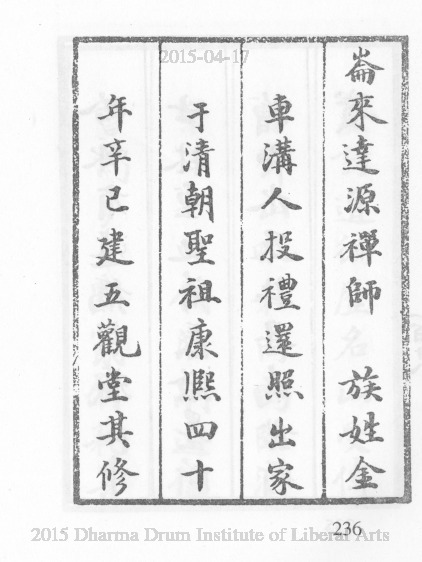 2015-04-17
崙來達源禪師 族姓金
車溝人投禮還照出家
于清朝聖祖康熙四十
年辛巳建五觀堂其修
236
2015 Dharma Drum Institute of Liberal Arts